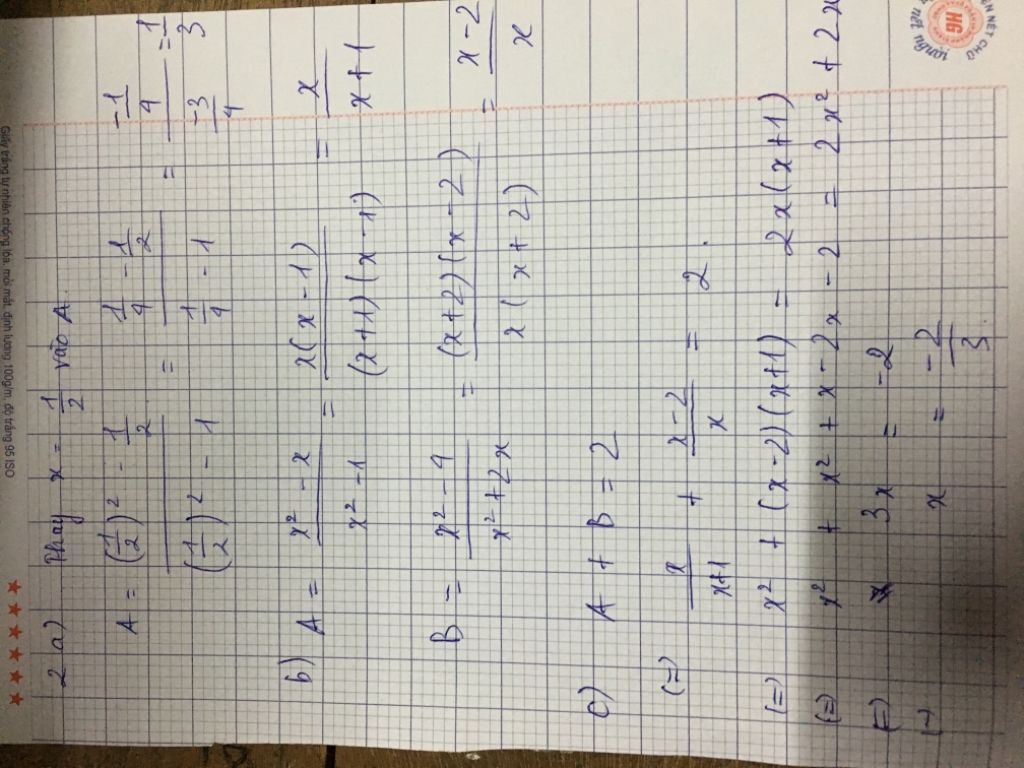 2 a) Thay x = 1/2 vào A.
A = ((1/2)² - 1/2)/((1/2)² - 1) = (1/4 - 1/2)/(1/4 - 1) = (-1/4)/(-3/4) = 1/3
b) A = (x² - x)/(x² - 1) = x(x - 1)/((x+1)(x-1)) = x/(x+1)
B = (x² - 4)/(x² + 2x) = (x+2)(x-2)/(x(x+2)) = (x-2)/x
c) A + B = 2
(=) x/(x+1) + (x-2)/x = 2.
(=) x² + (x-2)(x+1) = 2x(x+1)
(=) x² + x² + x - 2x - 2 = 2x² + 2x
(=) 3x = -2
(=) x = -2/3.
Giấy trắng tự nhiên, chống lóa, mỏi mắt, định lượng 100g/m, độ trắng 95 ISO
NÉT CHỮ
HG
nết người